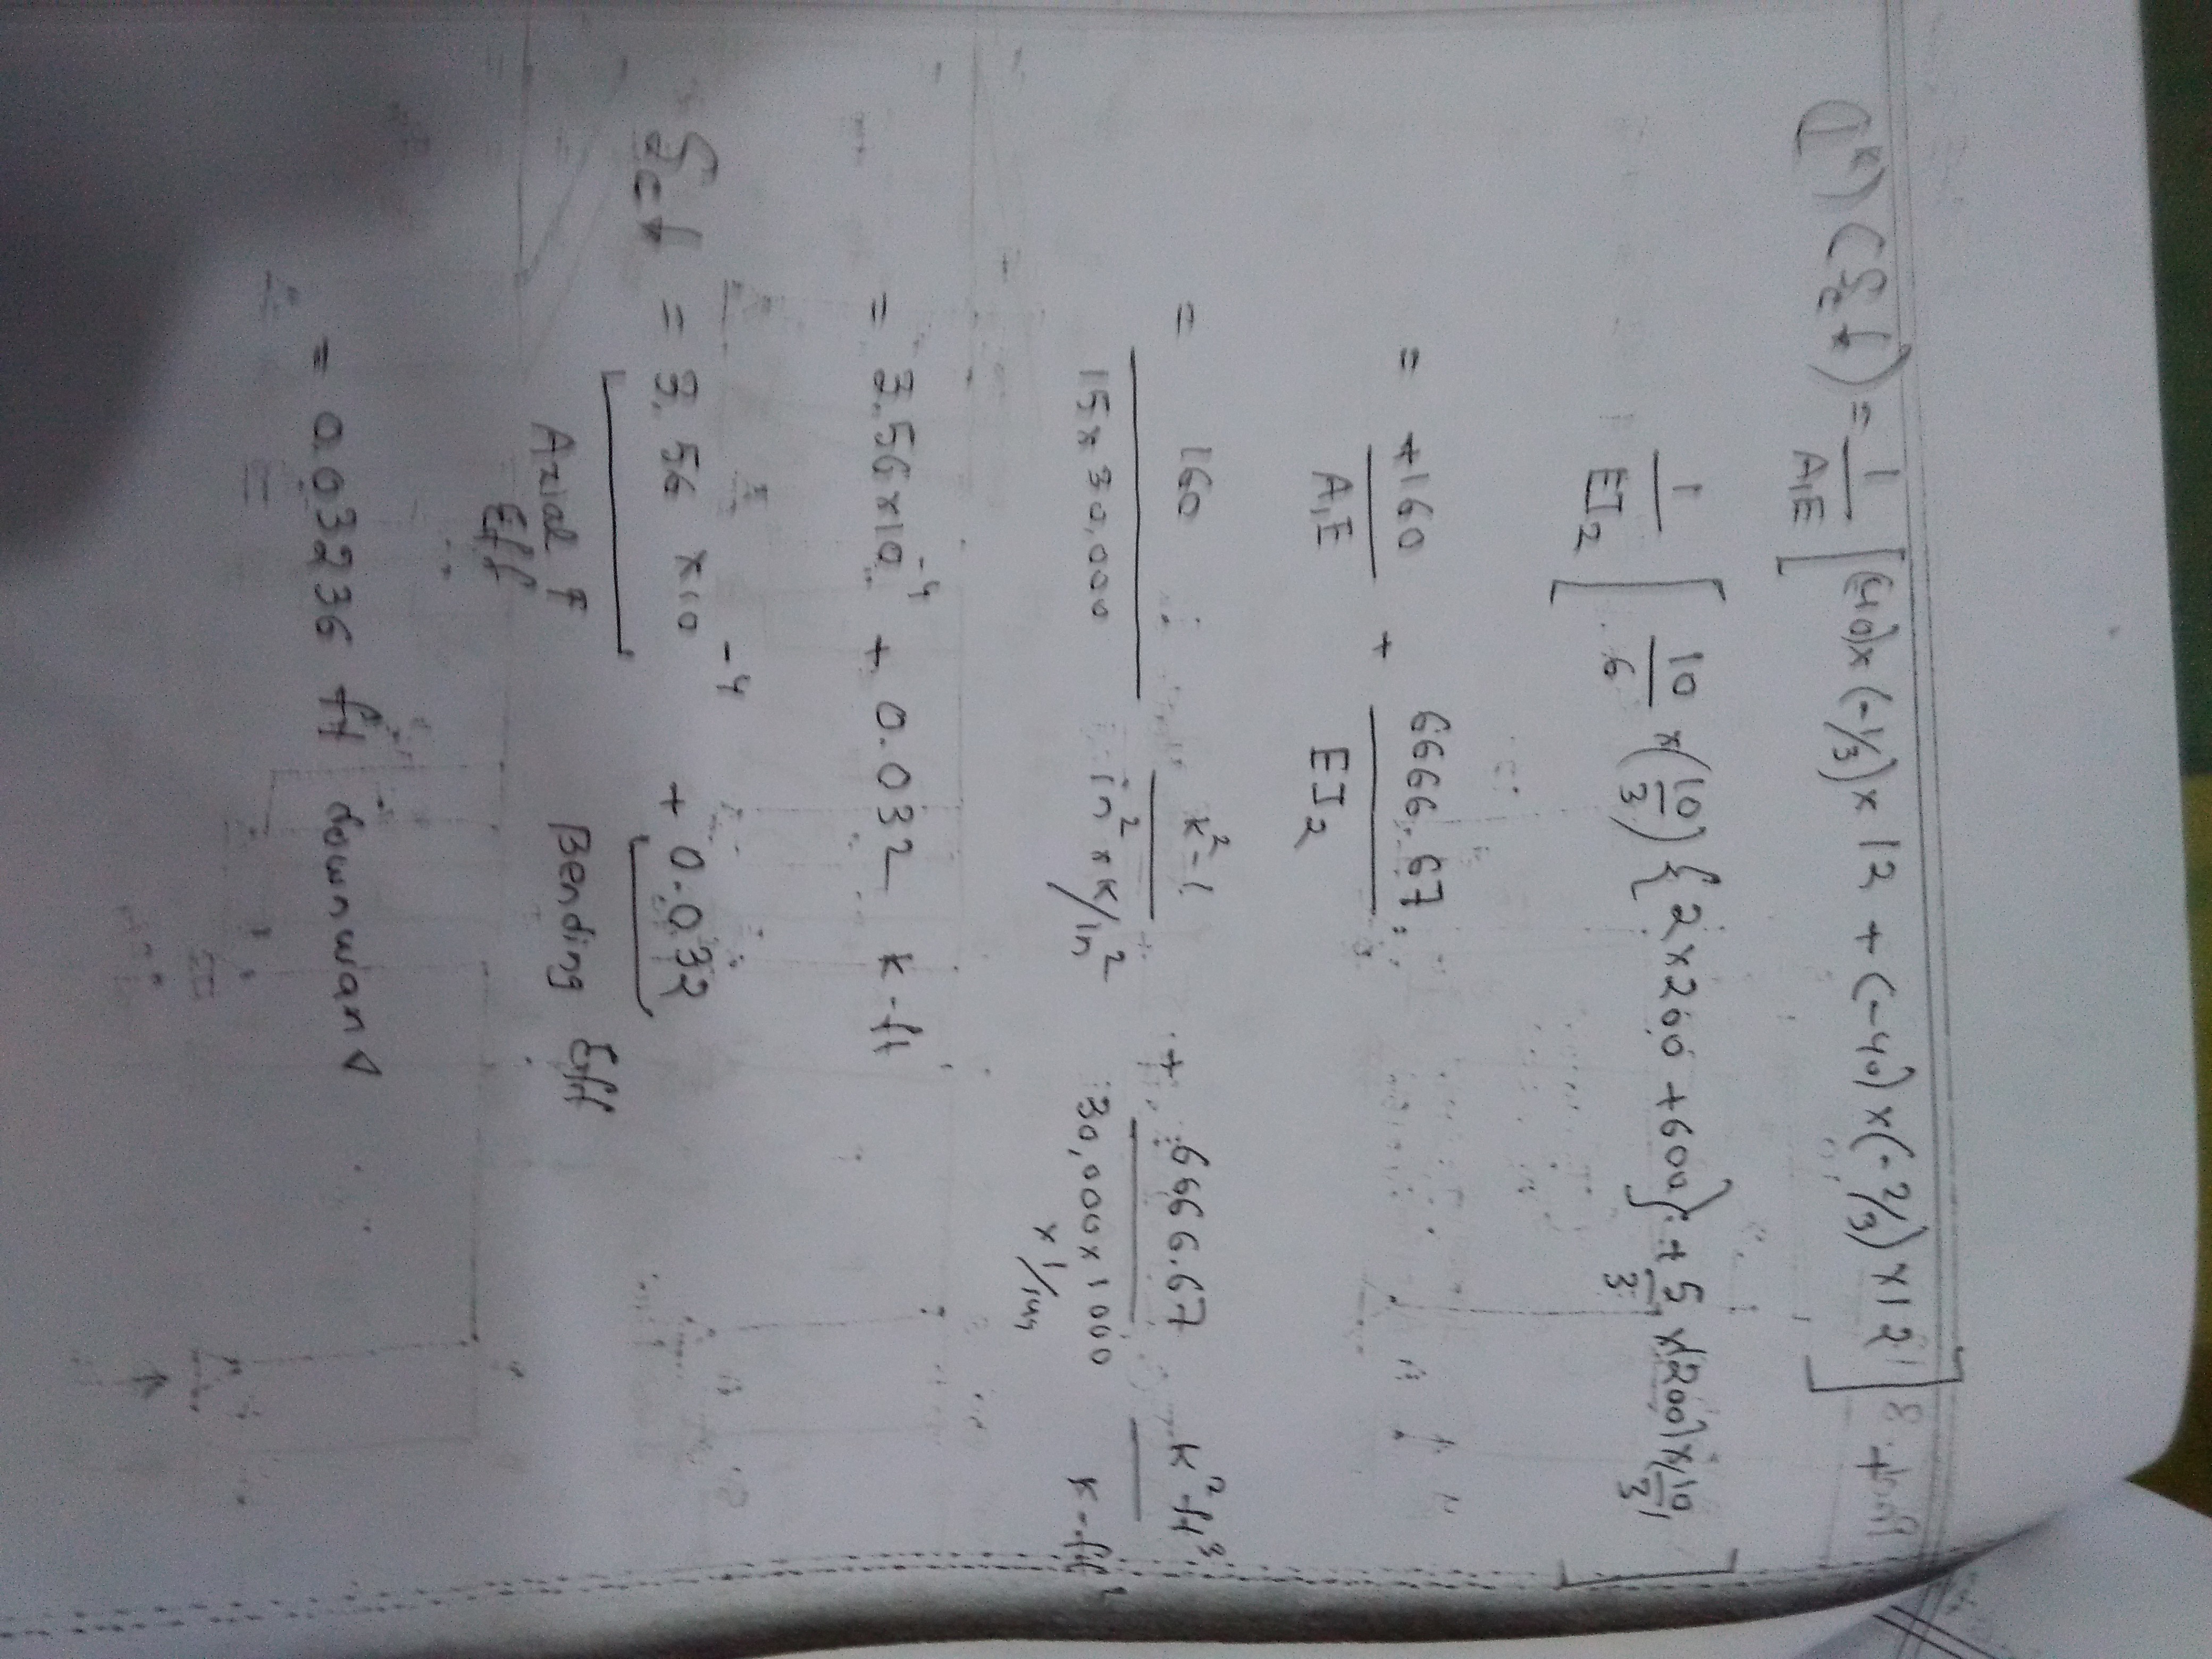 (1ᵏ) (δc↓) = 1/A₁E [(40)x(-1/3)x 12 + (-40)x(-2/3)x12] +
1/EI₂ [10/6 x(10/3){2x200+600} + 5/3 x(200)x(10/3)]
= +160/A₁E + 6666.67/EI₂
= 160/15x30,000 k²-1/in²xk/in² + 6666.67/30,000x1000x1/144 k²-ft³/k-ft²
= 3.56x10⁻⁴ + 0.032 k-ft
δc↓ = 3.56 x10⁻⁴ + 0.032
Axial F Eff Bending Eff
= 0.03236 ft downward